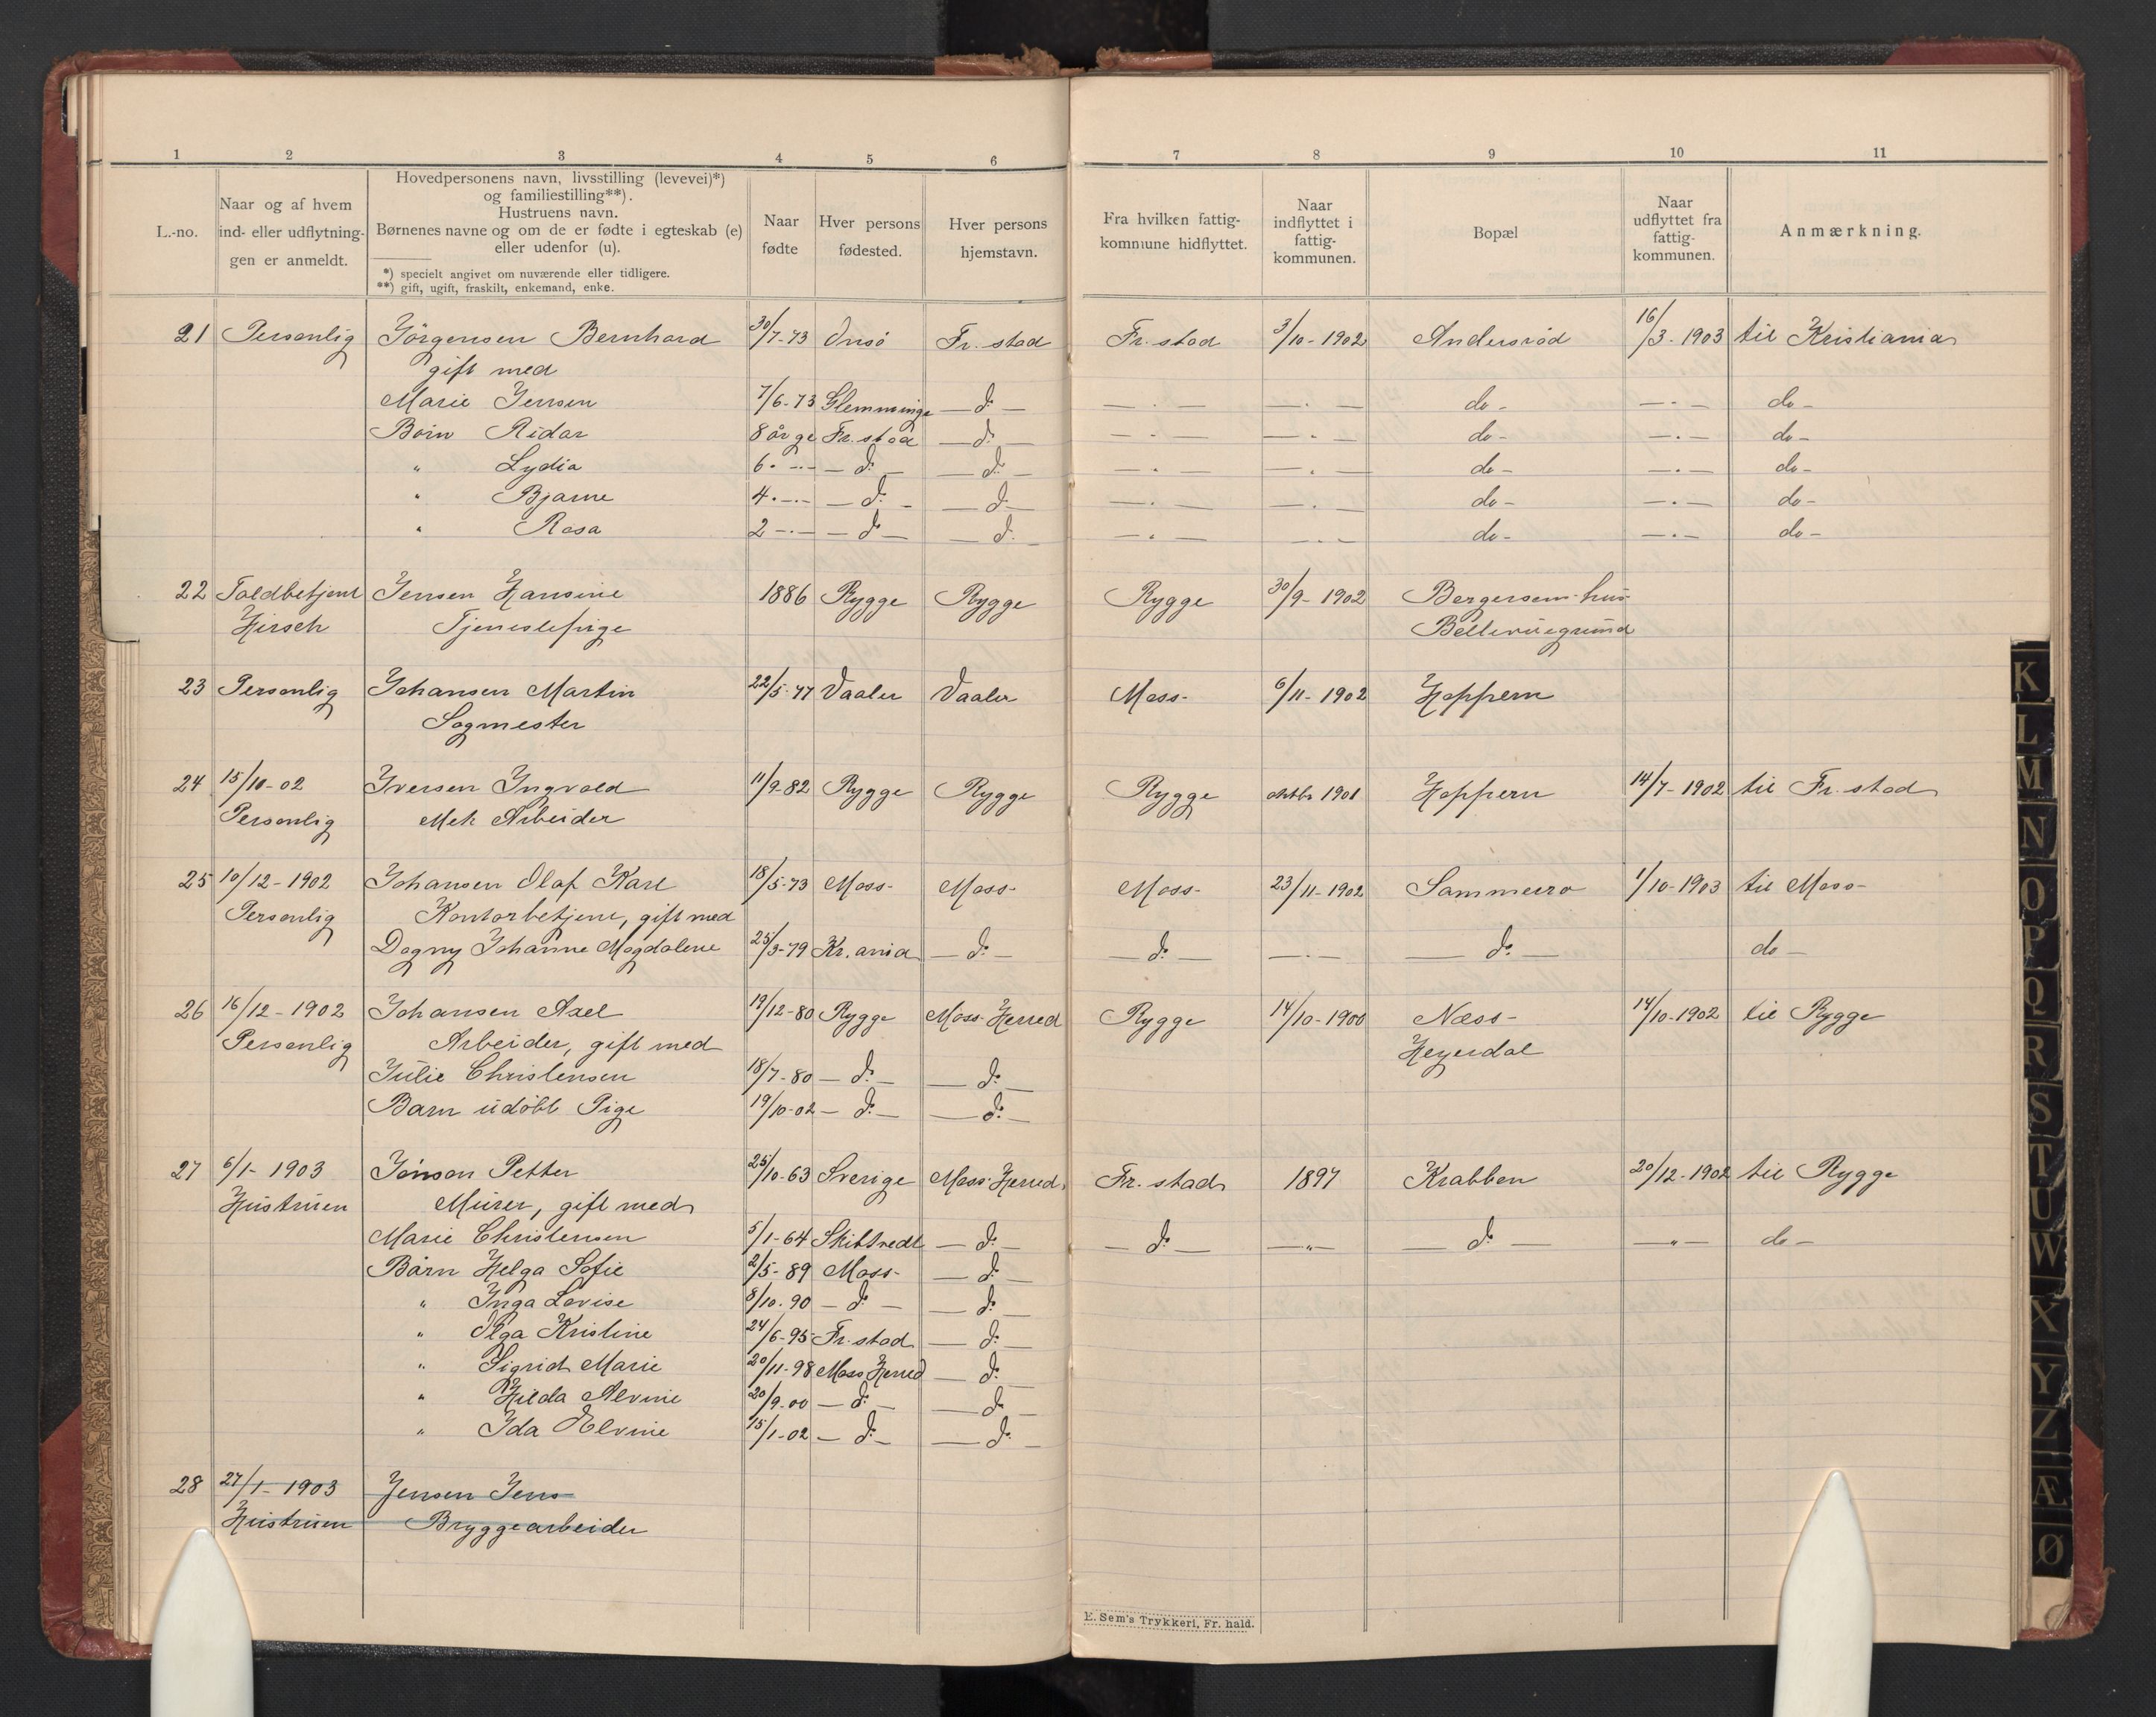 1 2 3 4 5 6 7 8 9 10 11
L.-no. | Naar og af hvem ind- eller udflytningen er anmeldt. | Hovedpersonens navn, livsstilling (levevei)*) og familiestilling**). Hustruens navn. Børnenes navne og om de er fødte i egteskab (e) eller udenfor (u). *) specielt angivet om nuværende eller tidligere. **) gift, ugift, fraskilt, enkemand, enke. | Naar fødte | Hver persons fødested. | Hver persons hjemstavn. | Fra hvilken fattigkommune hidflyttet. | Naar indflyttet i fattigkommunen. | Bopæl | Naar udflyttet fra fattigkommunen. | Anmærkning.
21 Personlig Jörgensen Bernhard 30/7-73 Onsö Fr. stad Fr. stad 3/10-1902 Andersröd 16/3-1903 til Kristiania
gift med
Marie Jensen 7/6-73 Glemminge — do — — . — — . — do — — . — do —
Börn Ridar 8 årge Fr. stad — do — — . — — . — do — — . — do —
" Lydia 6 . — . — — do — — do — — . — — . — do — — . — do —
" Bjarne 4 . — . — — do — — do — — . — — . — do — — . — do —
" Rosa 2 — . — — do — — do — — . — — . — do — — . — do —
22 Toldbetjent Jensen Hansine 1886 Rygge Rygge Rygge 30/9-1902 Bergersens hus
Hirsch Tjenestepige Bellevuegrund
23 Personlig Johansen Martin 22/5-77 Vaaler Vaaler Moss- 6/11-1902 Hoppern
Sagmester
24 15/10-02 Iversen Ingvald 11/9-82 Rygge Rygge Rygge oktbr 1901 Hoppern 14/7-1902 til Fr. stad
Personlig Mek Arbeider
25 10/12-1902 Johansen Olaf Karl 18/5-73 Moss- Moss- Moss- 23/11-1902 Sommerro 1/10-1903 til Moss-
Personlig Kontorbetjent, gift med
Dagny Johanne Magdalene 25/3-79 Kr.ania — do — — do — — . — — do — do —
26 16/12-1902 Johansen Axel 19/12-80 Rygge Moss-Herred Rygge 14/10-1900 Næss- 14/10-1902 til Rygge
Personlig Arbeider, gift med Heyerdal
Julie Christensen 18/7-80 — do — — do —
Barn udöbt Pige 19/10-02 — do — — do —
27 6/1-1903 Jönson Petter 25/10-63 Sverige Moss-Herred Fr. stad 1897 Krabben 20/12-1902 til Rygge
Hustruen Murer, gift med
Marie Christensen 5/1-64 Skibtvedt — do — — do — — " — — do — — " — do —
Börn Helga Sofie 2/5-89 Moss- — do —
" Inga Lovise 8/10-90 — do — — do —
" Olga Kristine 24/6-95 Fr. stad — do —
" Sigrid Marie 20/11-98 Moss Herred — do —
" Hilda Alvine 20/9-00 — do — — do —
" Ida Elvine 15/1-02 — do — — do —
28 27/1-1903 Jensen Jens
Hustruen Bryggearbeider
E. Sem's Trykkeri, Fr. hald.
K
L
M
N
O
P
Q
R
S
T
U
W
X
Y
Z
Æ
Ø